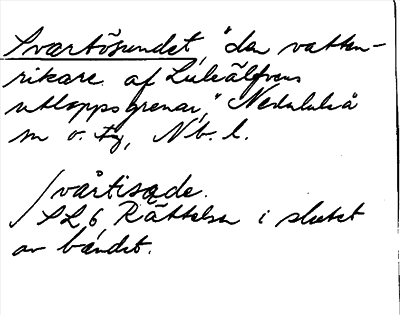 Svartösundet, "den vatten-
rikare af Luleälfvens
utloppsgrenar," Nederluleå
sn o. tg, Nb. l.
/vårtisade.
SL 6, Rättelser i slutet
av bandet.